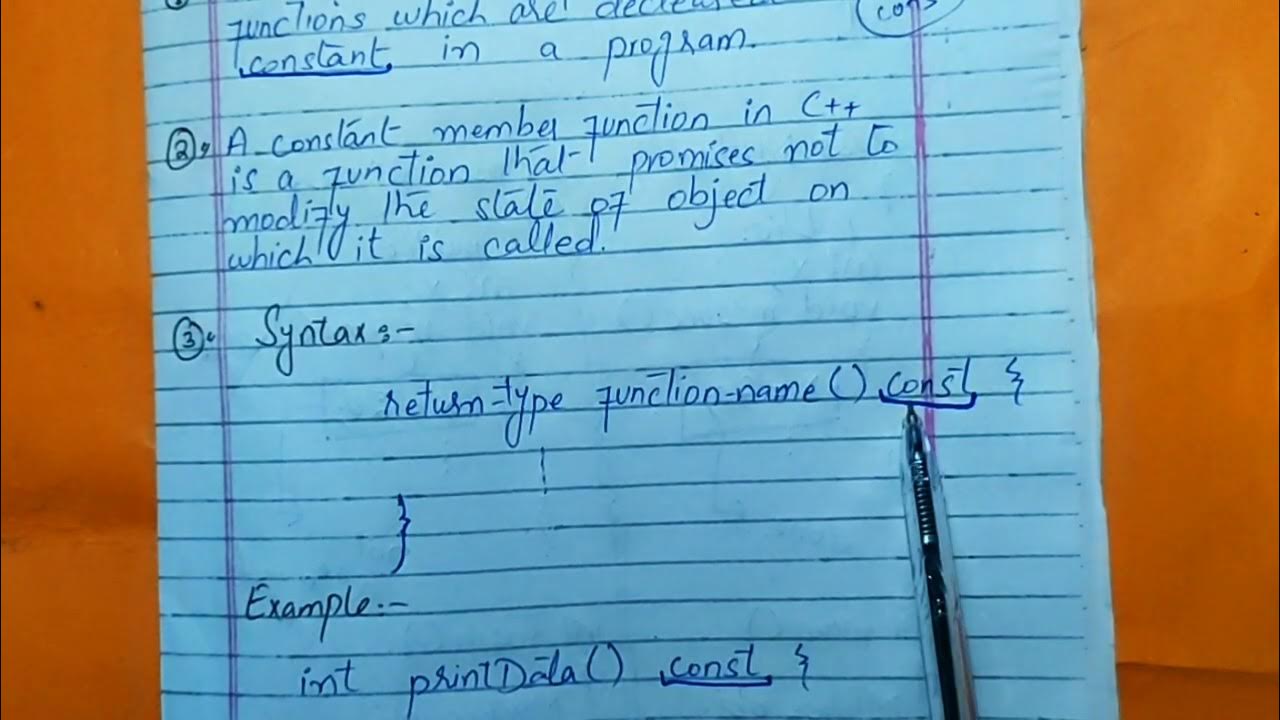 functions which are
constant in a program.
cons
②. A constant member function in C++
is a function that promises not to
modify the state of object on
which it is called.
③. Syntax:-
return-type function-name() const {
}
Example:-
int printData() const {